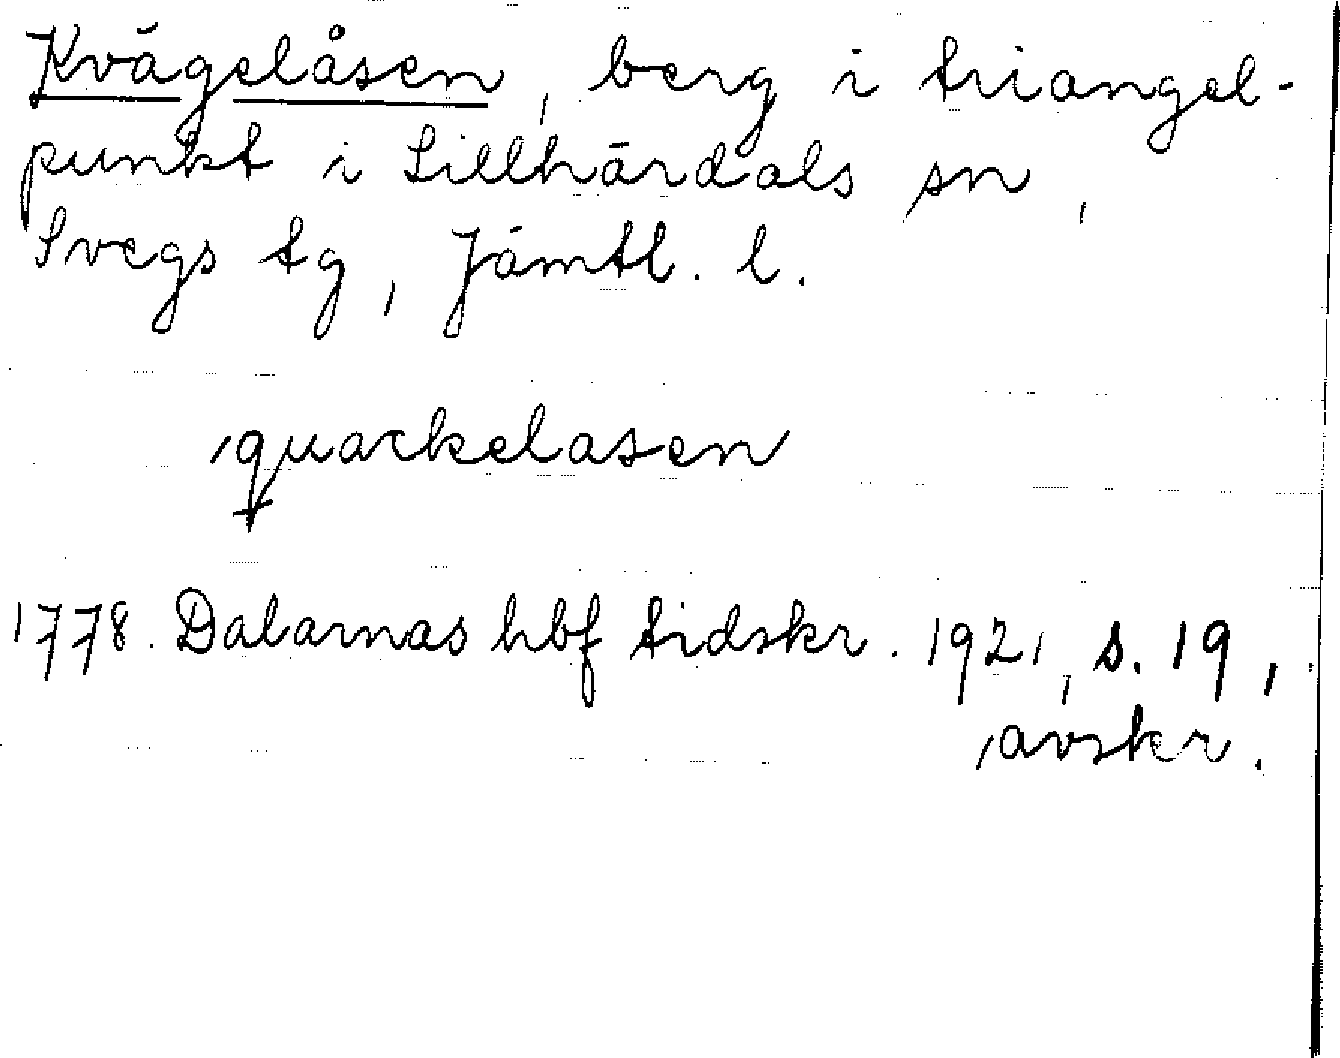 Kvägelåsen, berg i triangel-
punkt i Lillhärdals sn,
Svegs tg, Jämtl. l.
quackelasen
1778. Dalarnas hbf tidskr. 1921, s. 19,
avskr.